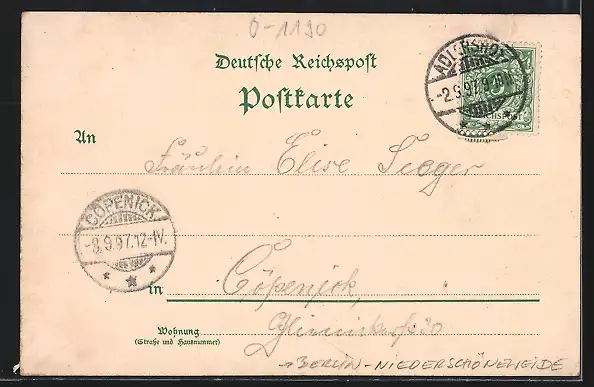 0-1190
Deutsche Reichspost
Postkarte
ADLERSHOF
-2.9.97. 9-10
REICHSPOST
An
Fräulein Elise Seeger
CÖPENICK
-3.9.97.12-1V.
in Cöpenick,
Wohnung
(Straße und Hausnummer)
→ BERLIN-NIEDERSCHÖNEWEIDE